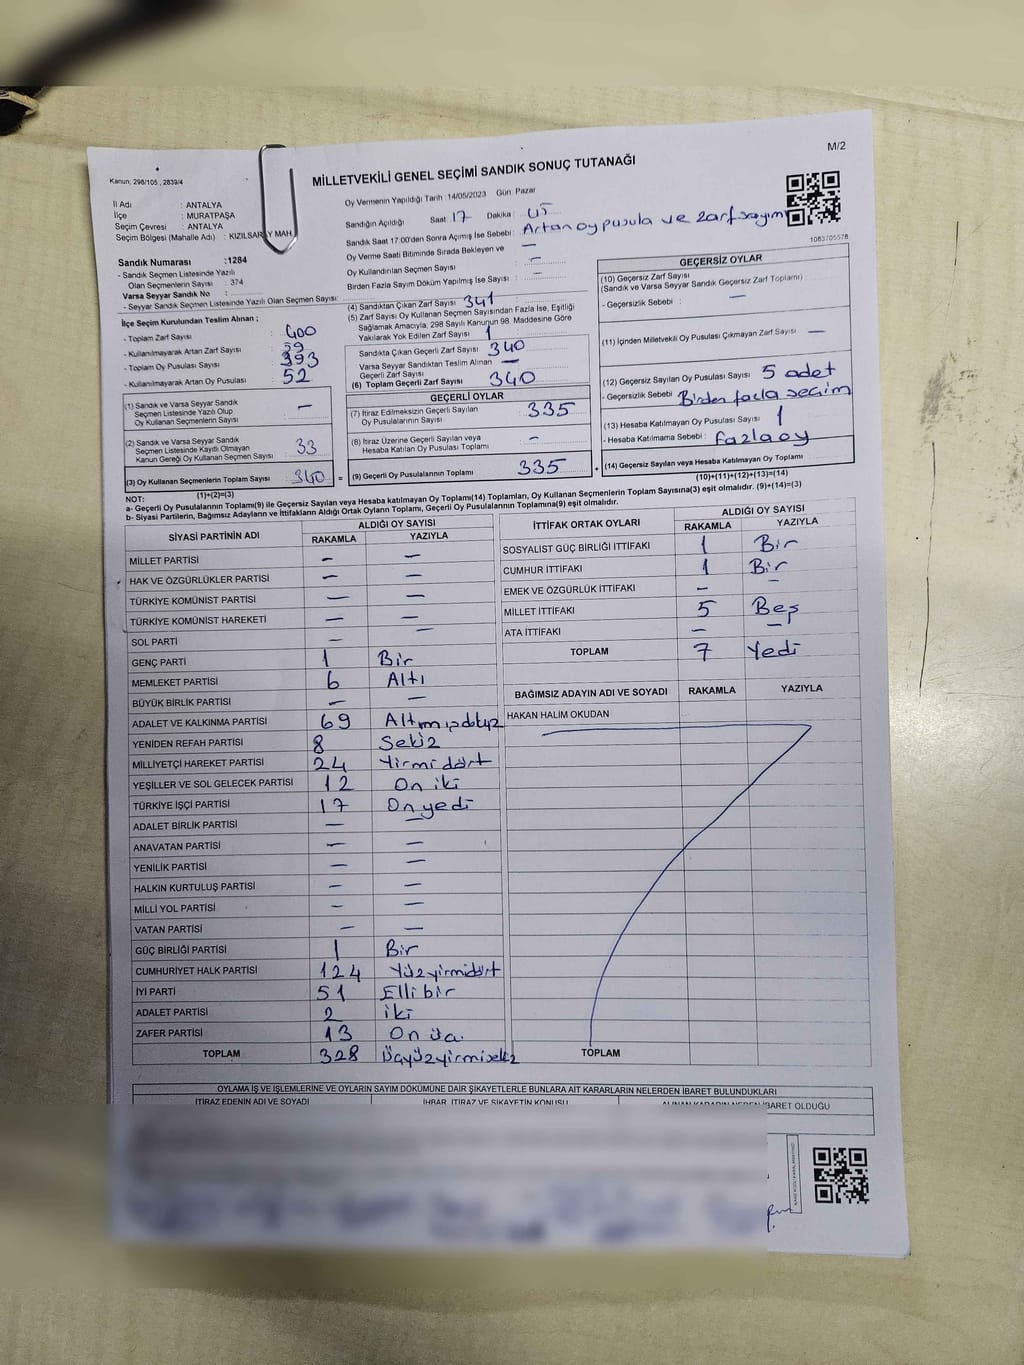 M/2
Kanun: 298/105 , 2839/4
MİLLETVEKİLİ GENEL SEÇİMİ SANDIK SONUÇ TUTANAĞI
İl Adı : ANTALYA
İlçe : MURATPAŞA
Seçim Çevresi : ANTALYA
Seçim Bölgesi (Mahalle Adı) : KIZILSARAY MAH.
Sandık Numarası :1284
- Sandık Seçmen Listesinde Yazılı
Olan Seçmenlerin Sayısı : 374
Varsa Seyyar Sandık No :
- Seyyar Sandık Seçmen Listesinde Yazılı Olan Seçmen Sayısı:
Oy Vermenin Yapıldığı Tarih :14/05/2023 Gün: Pazar
Sandığın Açıldığı Saat 17 Dakika :
Sandık Saat 17:00'den Sonra Açmış İse Sebebi: Artan oy pusula ve zarf sayım
Oy Verme Saati Bitiminde Sırada Bekleyen ve —
Oy Kullandırılan Seçmen Sayısı : —
Birden Fazla Sayım Döküm Yapılmış İse Sayısı : —
1083705578
İlçe Seçim Kurulundan Teslim Alınan ;
- Toplam Zarf Sayısı : 400
- Kullanılmayarak Artan Zarf Sayısı : 59
- Toplam Oy Pusulası Sayısı : 393
- Kullanılmayarak Artan Oy Pusulası : 52
(1) Sandık ve Varsa Seyyar Sandık
Seçmen Listesinde Yazılı Olup
Oy Kullanan Seçmenlerin Sayısı —
(2) Sandık ve Varsa Seyyar Sandık
Seçmen Listesinde Kayıtlı Olmayan
Kanun Gereği Oy Kullanan Seçmen Sayısı 33
(3) Oy Kullanan Seçmenlerin Toplam Sayısı 340
(1)+(2)=(3)
(4) Sandıktan Çıkan Zarf Sayısı 341
(5) Zarf Sayısı Oy Kullanan Seçmen Sayısından Fazla İse, Eşitliği
Sağlamak Amacıyla; 298 Sayılı Kanunun 98. Maddesine Göre
Yakılarak Yok Edilen Zarf Sayısı 1
Sandıkta Çıkan Geçerli Zarf Sayısı 340
Varsa Seyyar Sandıktan Teslim Alınan
Geçerli Zarf Sayısı —
(6) Toplam Geçerli Zarf Sayısı 340
GEÇERLİ OYLAR
(7) İtiraz Edilmeksizin Geçerli Sayılan
Oy Pusulalarının Toplamı 335
(8) İtiraz Üzerine Geçerli Sayılan veya
Hesaba Katılan Oy Pusulası Toplamı -
= (9) Geçerli Oy Pusulalarının Toplamı 335 +
GEÇERSİZ OYLAR
(10) Geçersiz Zarf Sayısı
(Sandık ve Varsa Seyyar Sandık Geçersiz Zarf Toplamı)
- Geçersizlik Sebebi : —
(11) İçinden Milletvekili Oy Pusulası Çıkmayan Zarf Sayısı —
(12) Geçersiz Sayılan Oy Pusulası Sayısı 5 adet
- Geçersizlik Sebebi : Birden fazla seçim
(13) Hesaba Katılmayan Oy Pusulası Sayısı 1
- Hesaba Katılmama Sebebi : fazla oy
(14) Geçersiz Sayılan veya Hesaba Katılmayan Oy Toplamı
(10)+(11)+(12)+(13)=(14)
NOT:
a- Geçerli Oy Pusulalarının Toplam(9) ile Geçersiz Sayılan veya Hesaba katılmayan Oy Toplam(14) Toplamları, Oy Kullanan Seçmenlerin Toplam Sayısına(3) eşit olmalıdır. (9)+(14)=(3)
b- Siyasi Partilerin, Bağımsız Adayların ve İttifakların Aldığı Ortak Oyların Toplamı, Geçerli Oy Pusulalarının Toplamına(9) eşit olmalıdır.
SİYASİ PARTİNİN ADI ALDIĞI OY SAYISI
RAKAMLA YAZIYLA
MİLLET PARTİSİ — —
HAK VE ÖZGÜRLÜKLER PARTİSİ — —
TÜRKİYE KOMÜNİST PARTİSİ — —
TÜRKİYE KOMÜNİST HAREKETİ — —
SOL PARTİ — —
GENÇ PARTİ 1 Bir
MEMLEKET PARTİSİ 6 Altı
BÜYÜK BİRLİK PARTİSİ — —
ADALET VE KALKINMA PARTİSİ 69 Altmışdokuz
YENİDEN REFAH PARTİSİ 8 Sekiz
MİLLİYETÇİ HAREKET PARTİSİ 24 Yirmi dört
YEŞİLLER VE SOL GELECEK PARTİSİ 12 On iki
TÜRKİYE İŞÇİ PARTİSİ 17 On yedi
ADALET BİRLİK PARTİSİ — —
ANAVATAN PARTİSİ — —
YENİLİK PARTİSİ — —
HALKIN KURTULUŞ PARTİSİ — —
MİLLİ YOL PARTİSİ — —
VATAN PARTİSİ — —
GÜÇ BİRLİĞİ PARTİSİ 1 Bir
CUMHURİYET HALK PARTİSİ 124 Yüzyirmidört
İYİ PARTİ 51 Ellibir
ADALET PARTİSİ 2 iki
ZAFER PARTİSİ 13 On üç
TOPLAM 328 Üçyüzyirmisekiz
İTTİFAK ORTAK OYLARI ALDIĞI OY SAYISI
RAKAMLA YAZIYLA
SOSYALİST GÜÇ BİRLİĞİ İTTİFAKI 1 Bir
CUMHUR İTTİFAKI 1 Bir
EMEK VE ÖZGÜRLÜK İTTİFAKI — —
MİLLET İTTİFAKI 5 Beş
ATA İTTİFAKI — —
TOPLAM 7 Yedi
BAĞIMSIZ ADAYIN ADI VE SOYADI RAKAMLA YAZIYLA
HAKAN HALİM OKUDAN
TOPLAM
OYLAMA İŞ VE İŞLEMLERİNE VE OYLARIN SAYIM DÖKÜMÜNE DAİR ŞİKAYETLERLE BUNLARA AİT KARARLARIN NELERDEN İBARET BULUNDUKLARI
İTİRAZ EDENİN ADI VE SOYADI İHBAR, İTİRAZ VE ŞİKAYETİN KONUSU ALINAN KARARIN NEDEN İBARET OLDUĞU